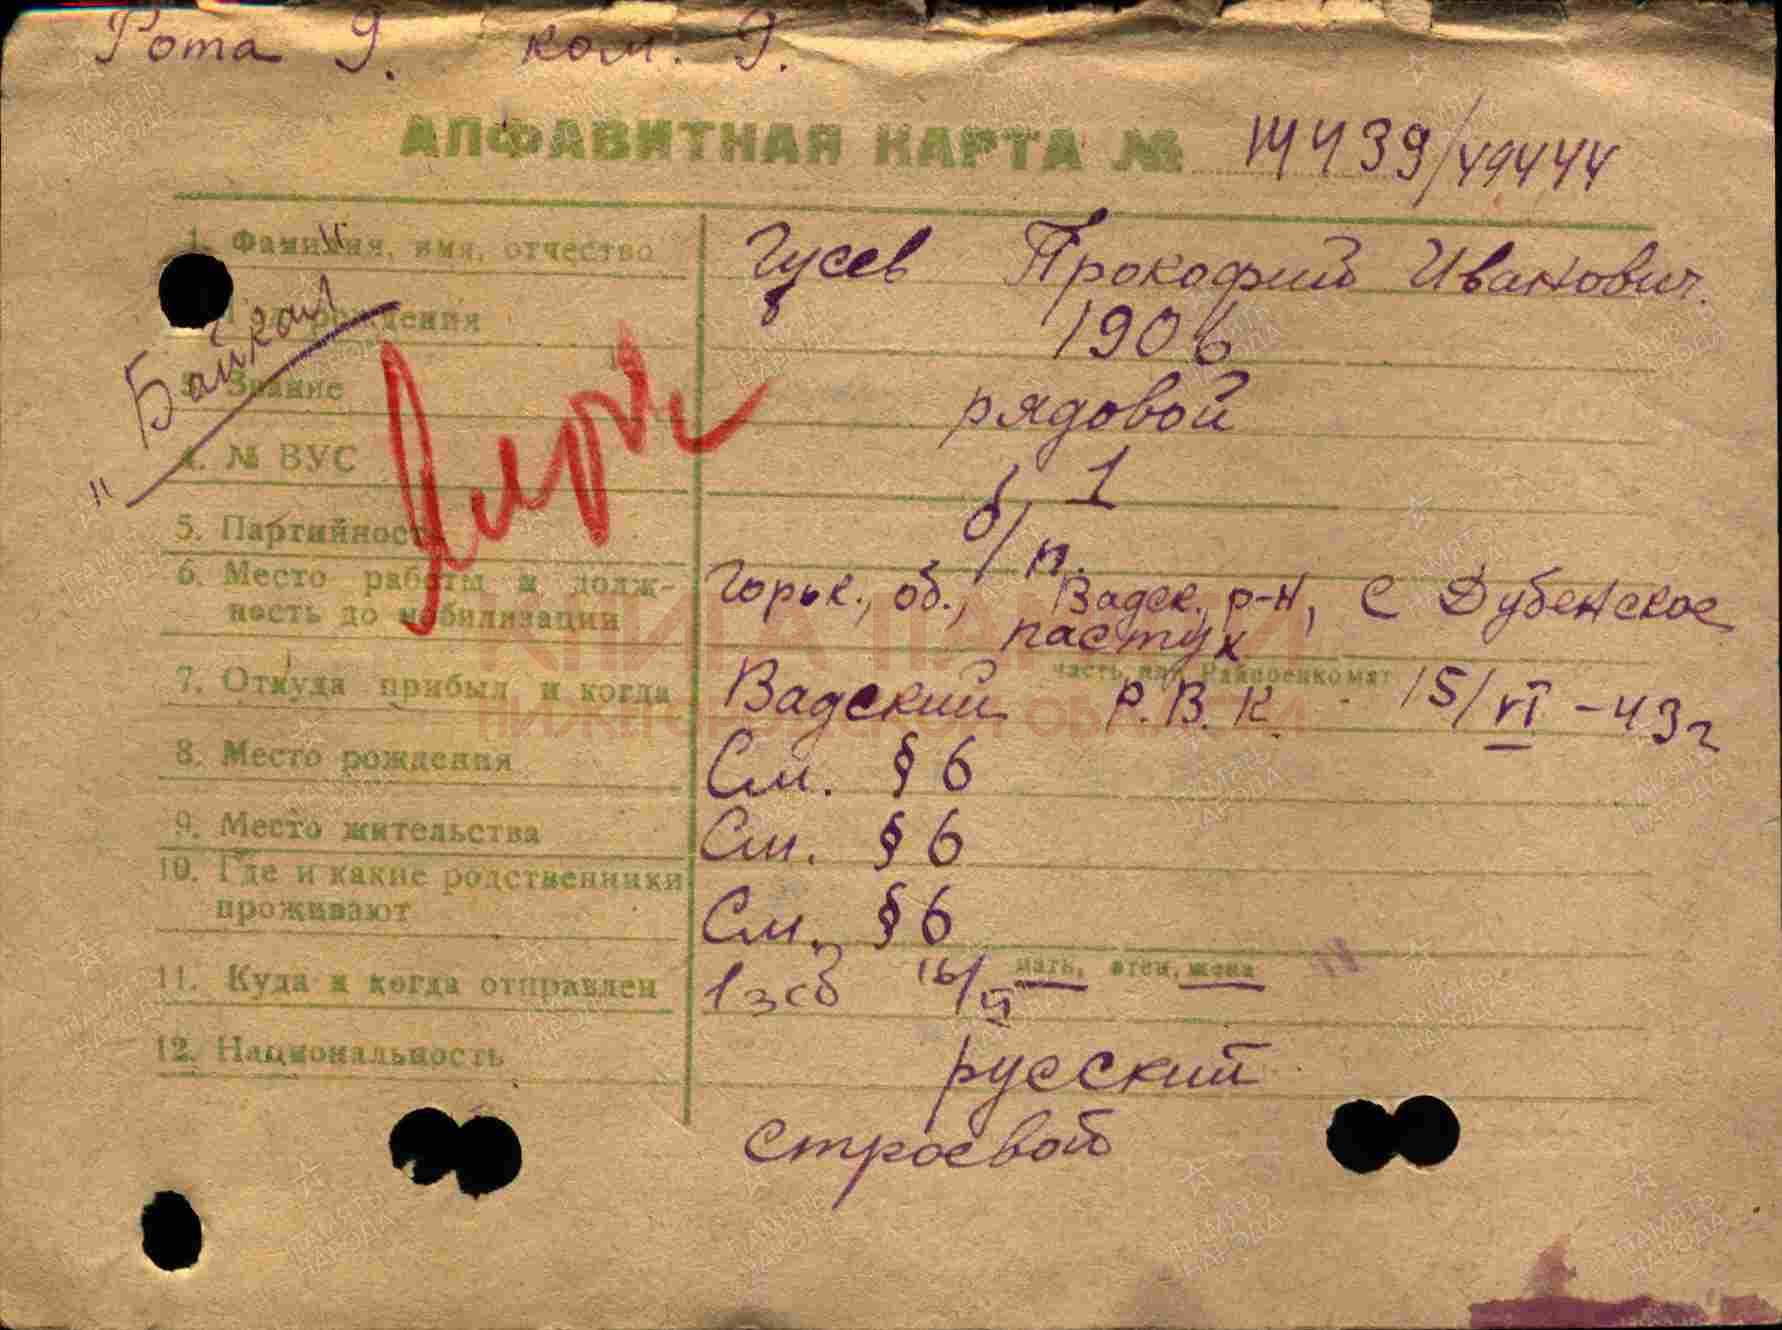 Рота 9. ком. 9.
АЛФАВИТНАЯ КАРТА № 14439/49444
1. Фамилия, имя, отчество Гусев Прокофий Иванович.
Год рождения 1906
3. Звание рядовой
"Байкал"
4. № ВУС 1
5. Партийность б/п.
6. Место работы и долж-
ность до мобилизации Горьк., об., Вадск., р-н, с Дубенское
пастух
часть, или Райвоенкомат
7. Откуда прибыл и когда Вадский Р.В.К. 15/VI-43г
8. Место рождения См. §6
9. Место жительства См. §6
10. Где и какие родственники
проживают См. §6
мать, отец, жена
11. Куда и когда отправлен 1 зсб 16/VI
12. Национальность русский
строевой
КНИГА ПАМЯТИ
НИЖЕГОРОДСКОЙ ОБЛАСТИ
ПАМЯТЬ
НАРОДА